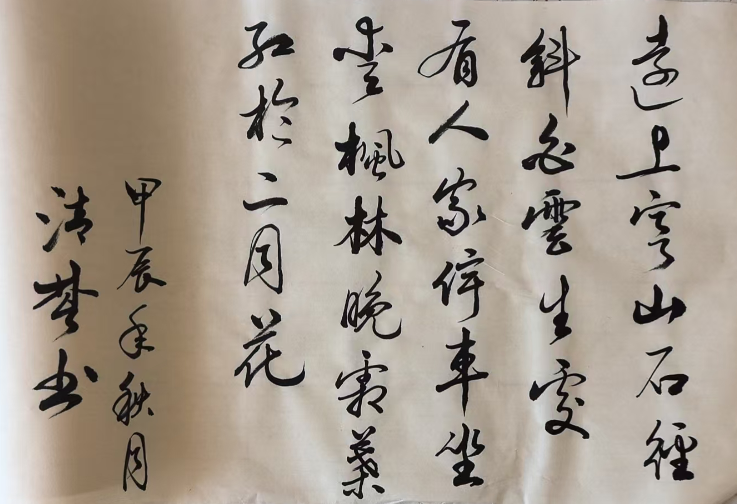 遠上寒山石徑
斜白雲生處
有人家停車坐
愛楓林晚霜葉
紅於二月花
甲辰年秋月
清书